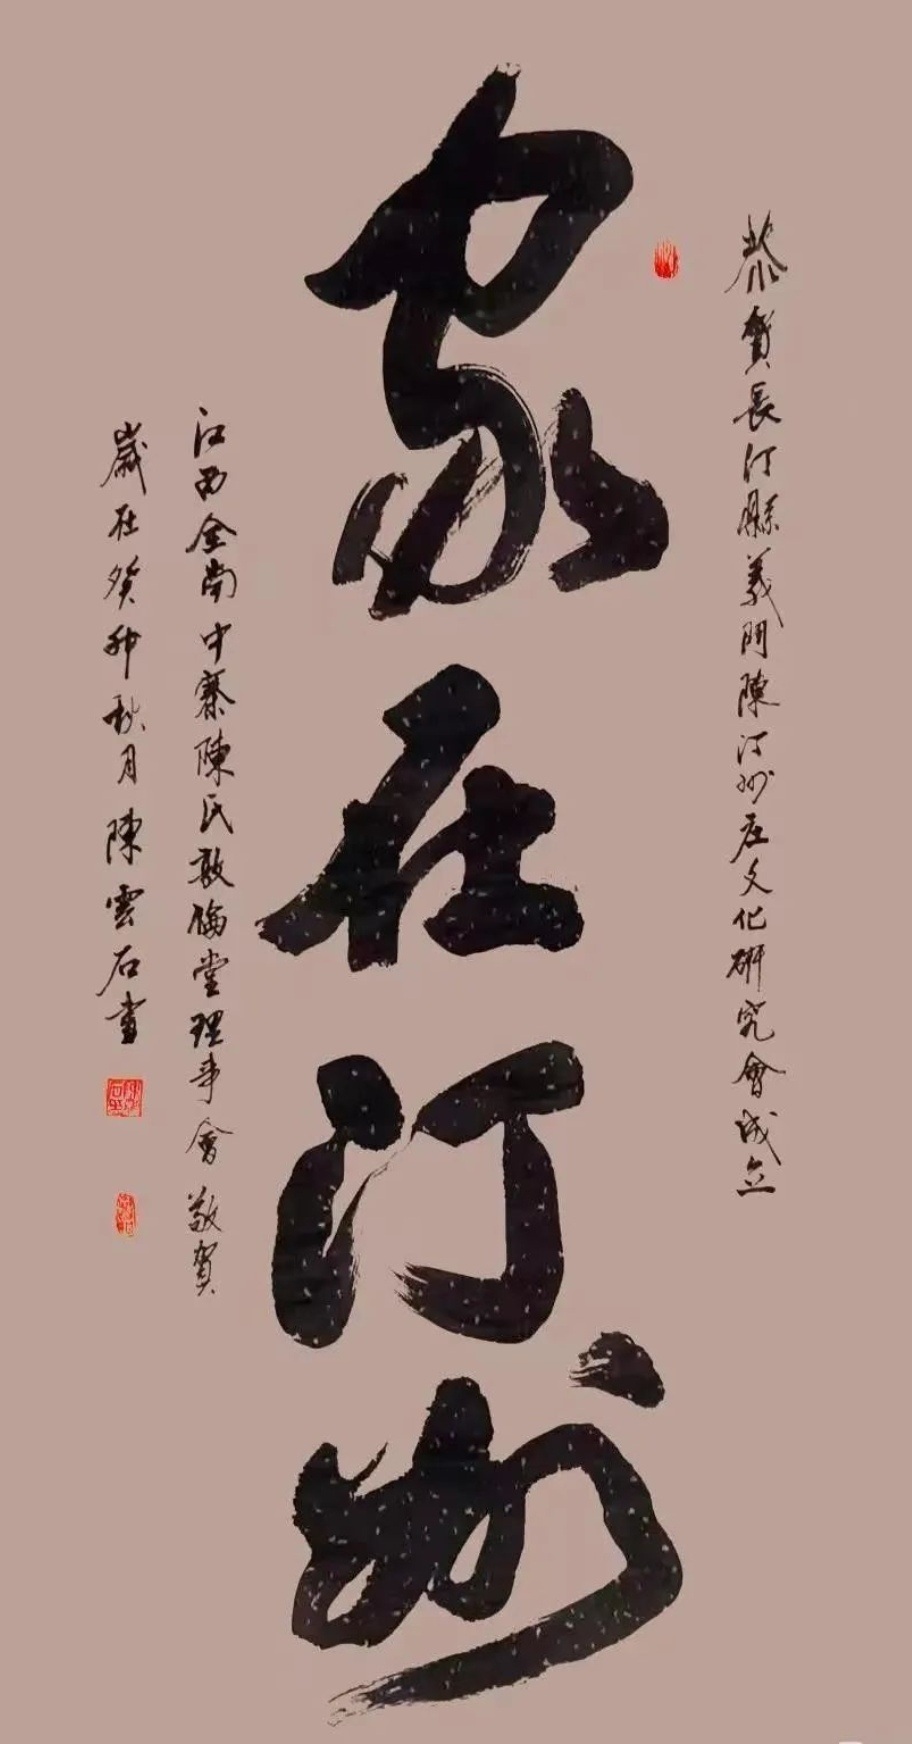 恭賀長汀縣義門陳汀州庄文化研究會成立
家在汀州
江西全南中寨陳氏敦倫堂理事會敬賀
歲在癸卯秋月陳雲石書